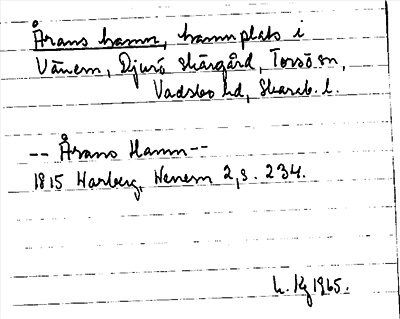 Årans hamn, hamnplats i
Vänern, Djurö skärgård, Torsö sn,
Vadsbo hd, Skarab. l.
-- Årans Hamn --
1815 Warberg, Wenern 2, s. 234.
L. Kg 1965.